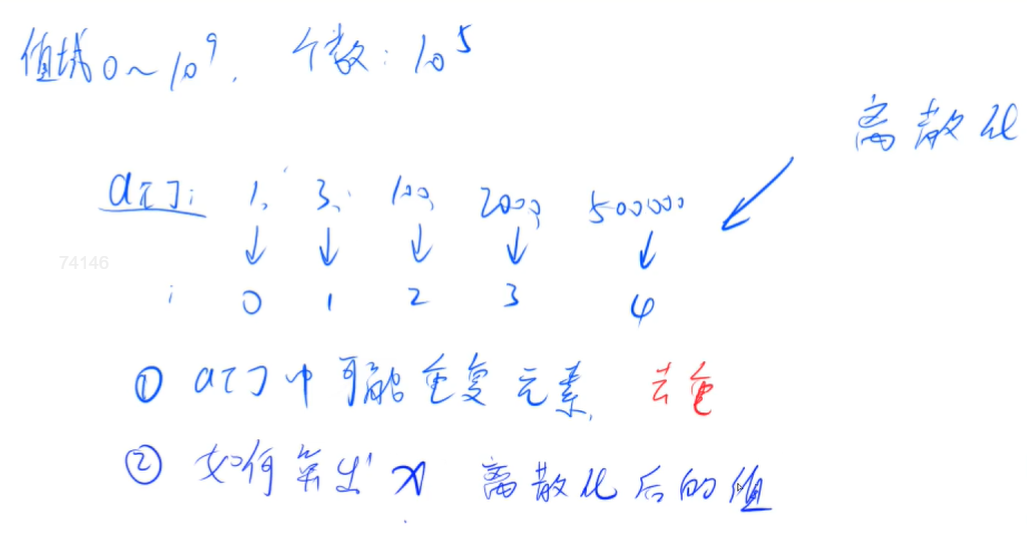 值域0~10⁹. 个数: 10⁵
离散化
a[]: 1, 3, 100, 2000, 500000
74146
0 1 2 3 4
① a[]中可能重复元素, 去重
② 如何算出x 离散化后的值